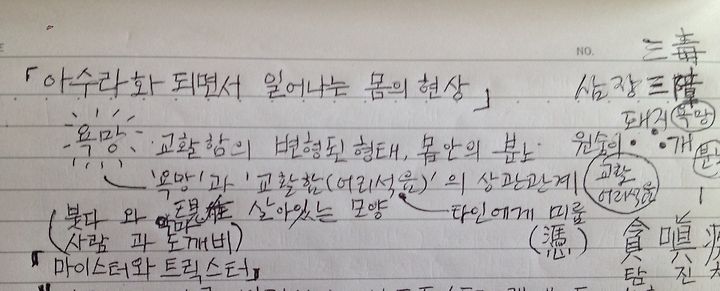 NO.
三毒
「아수라화 되면서 일어나는 몸의 현상」
삼장 三障
욕망 · 교활함의 변형된 형태, 몸안의 분노· 원숭이
돼지 욕망
개
'욕망'과 '교활함(어리석음)'의 상관관계
교활 어리석음
붓다 와 살아있는 모양 타인에게 미룸
(사람 과 도깨비) (憑)
貪 嗔
「마이스터와 트릭스터」
탐 진